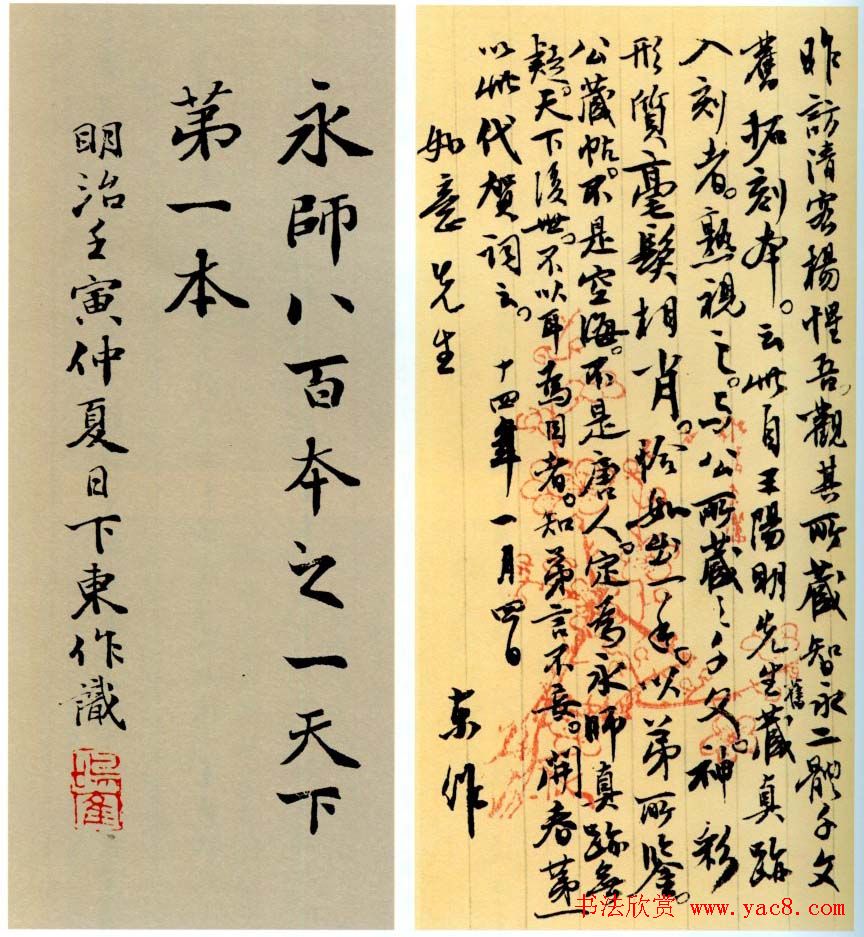 昨訪清客楊惺吾。觀其所藏智永二體千文
舊拓刻本。云此自王陽明先生舊藏真跡
入刻者。熟視之。与公所藏之千文。神彩
形質毫髮相肖。恰如出一手。以弟所鑒。
公藏帖。不是空海。不是唐人。定為永師真跡無
疑。天下後世。不以耳為目者。知弟言不妄。開春第一
以此代賀詞云。
十四年一月四日
東作
如意先生
永師八百本之一天下
第一本
明治壬寅仲夏日下東作識
书法欣赏 www.yac8.com